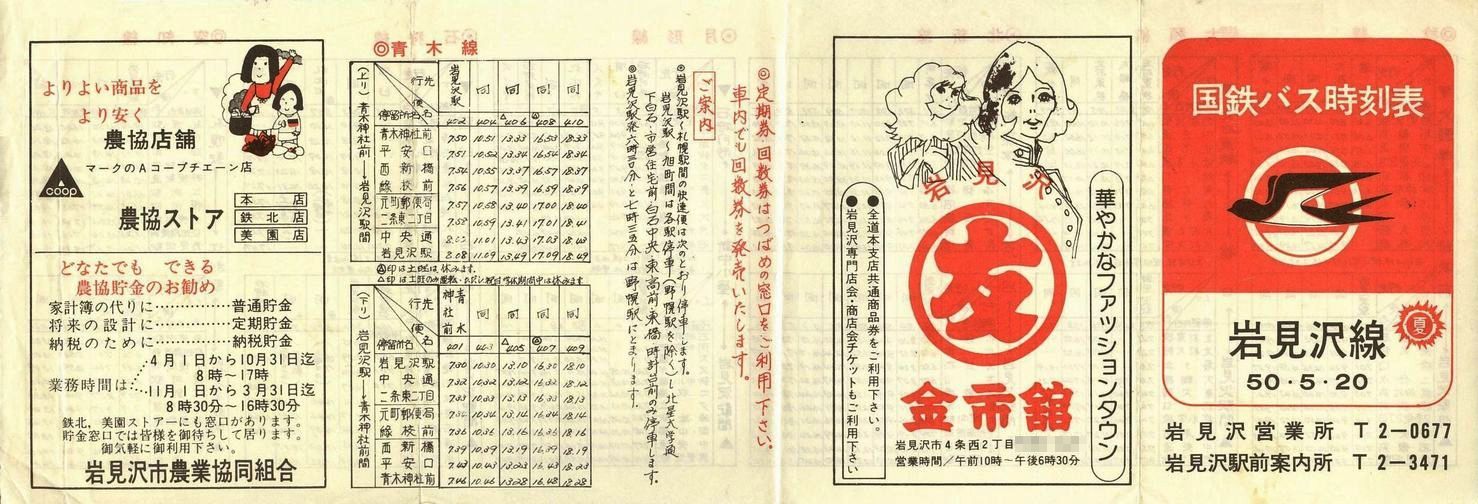 国鉄バス時刻表
岩見沢線
夏
50・5・20
岩見沢営業所 T 2-0677
岩見沢駅前案内所 T 2-3471
華やかなファッションタウン
岩見沢
友
金市舘
●全道本支店共通商品券をご利用下さい。
●岩見沢専門店会・商店会チケットもご利用下さい。
岩見沢市4条西2丁目
営業時間/午前10時~午後6時30分
◎定期券 回数券はつばめの窓口をご利用下さい。
車内でも回数券を発売いたします。
ご案内
◎岩見沢駅~札幌駅間の快速便は次のとおり停車します。
岩見沢駅~旭町間は各駅停車(野幌駅を除く)し北星大学通
下白石・市営住宅前 白石中央・東高前・東橋・時計台前のみ停車します。
◎青木線
(上り) 青木神社前→岩見沢駅間
行先 岩見沢駅 同 同 同 同
停留所名 便名 402 404 △406 Ⓐ408 410
青木神社前 7.50 10.51 13.33 16.53 18.33
平安口 7.51 10.52 13.34 16.54 18.34
西新橋 7.54 10.55 13.37 16.57 18.37
緑校前 7.56 10.57 13.39 16.59 18.39
元町郵便局 7.57 10.58 13.40 17.00 18.40
二条東二丁目 7.58 10.59 13.41 17.01 18.41
中央通 11.01 13.43 17.03 18.43
岩見沢駅 8.08 11.09 13.49 17.09 18.49
Ⓐ印は土曜は休みます。
△印は土曜のみ運転・ただし祝日学休期間中は休みます
(下り) 岩見沢駅→青木神社前間
行先 青木神社前 同 同 同 同
停留所名 便名 401 403 △405 Ⓐ407 409
岩見沢駅 7.30 10.30 13.10 16.30 18.10
中央通 7.32 10.32 13.12 16.32 18.12
二条東二丁目 7.33 10.33 13.13 16.33 18.13
元町郵便局 7.34 10.34 13.14 16.34 18.14
緑校前 7.36 10.36 13.16 16.36 18.16
西新橋 7.39 10.39 13.19 16.39 18.19
平安口 7.43 10.43 13.23 16.43 18.23
青木神社前 7.46 10.46 13.28 16.48 18.28
よりよい商品を
より安く
農協店舗
マークのAコープチエーン店
coop
農協ストア
本店
鉄北店
美園店
どなたでも できる
農協貯金のお勧め
家計簿の代りに…………普通貯金
将来の設計に……………定期貯金
納税のために……………納税貯金
業務時間は:
4月1日から10月31日迄
8時~17時
11月1日から3月31日迄
8時30分~16時30分
鉄北,美園ストアーにも窓口があります。
貯金窓口では皆様を御待ちして居ります。
御気軽に御利用下さい。
岩見沢市農業協同組合